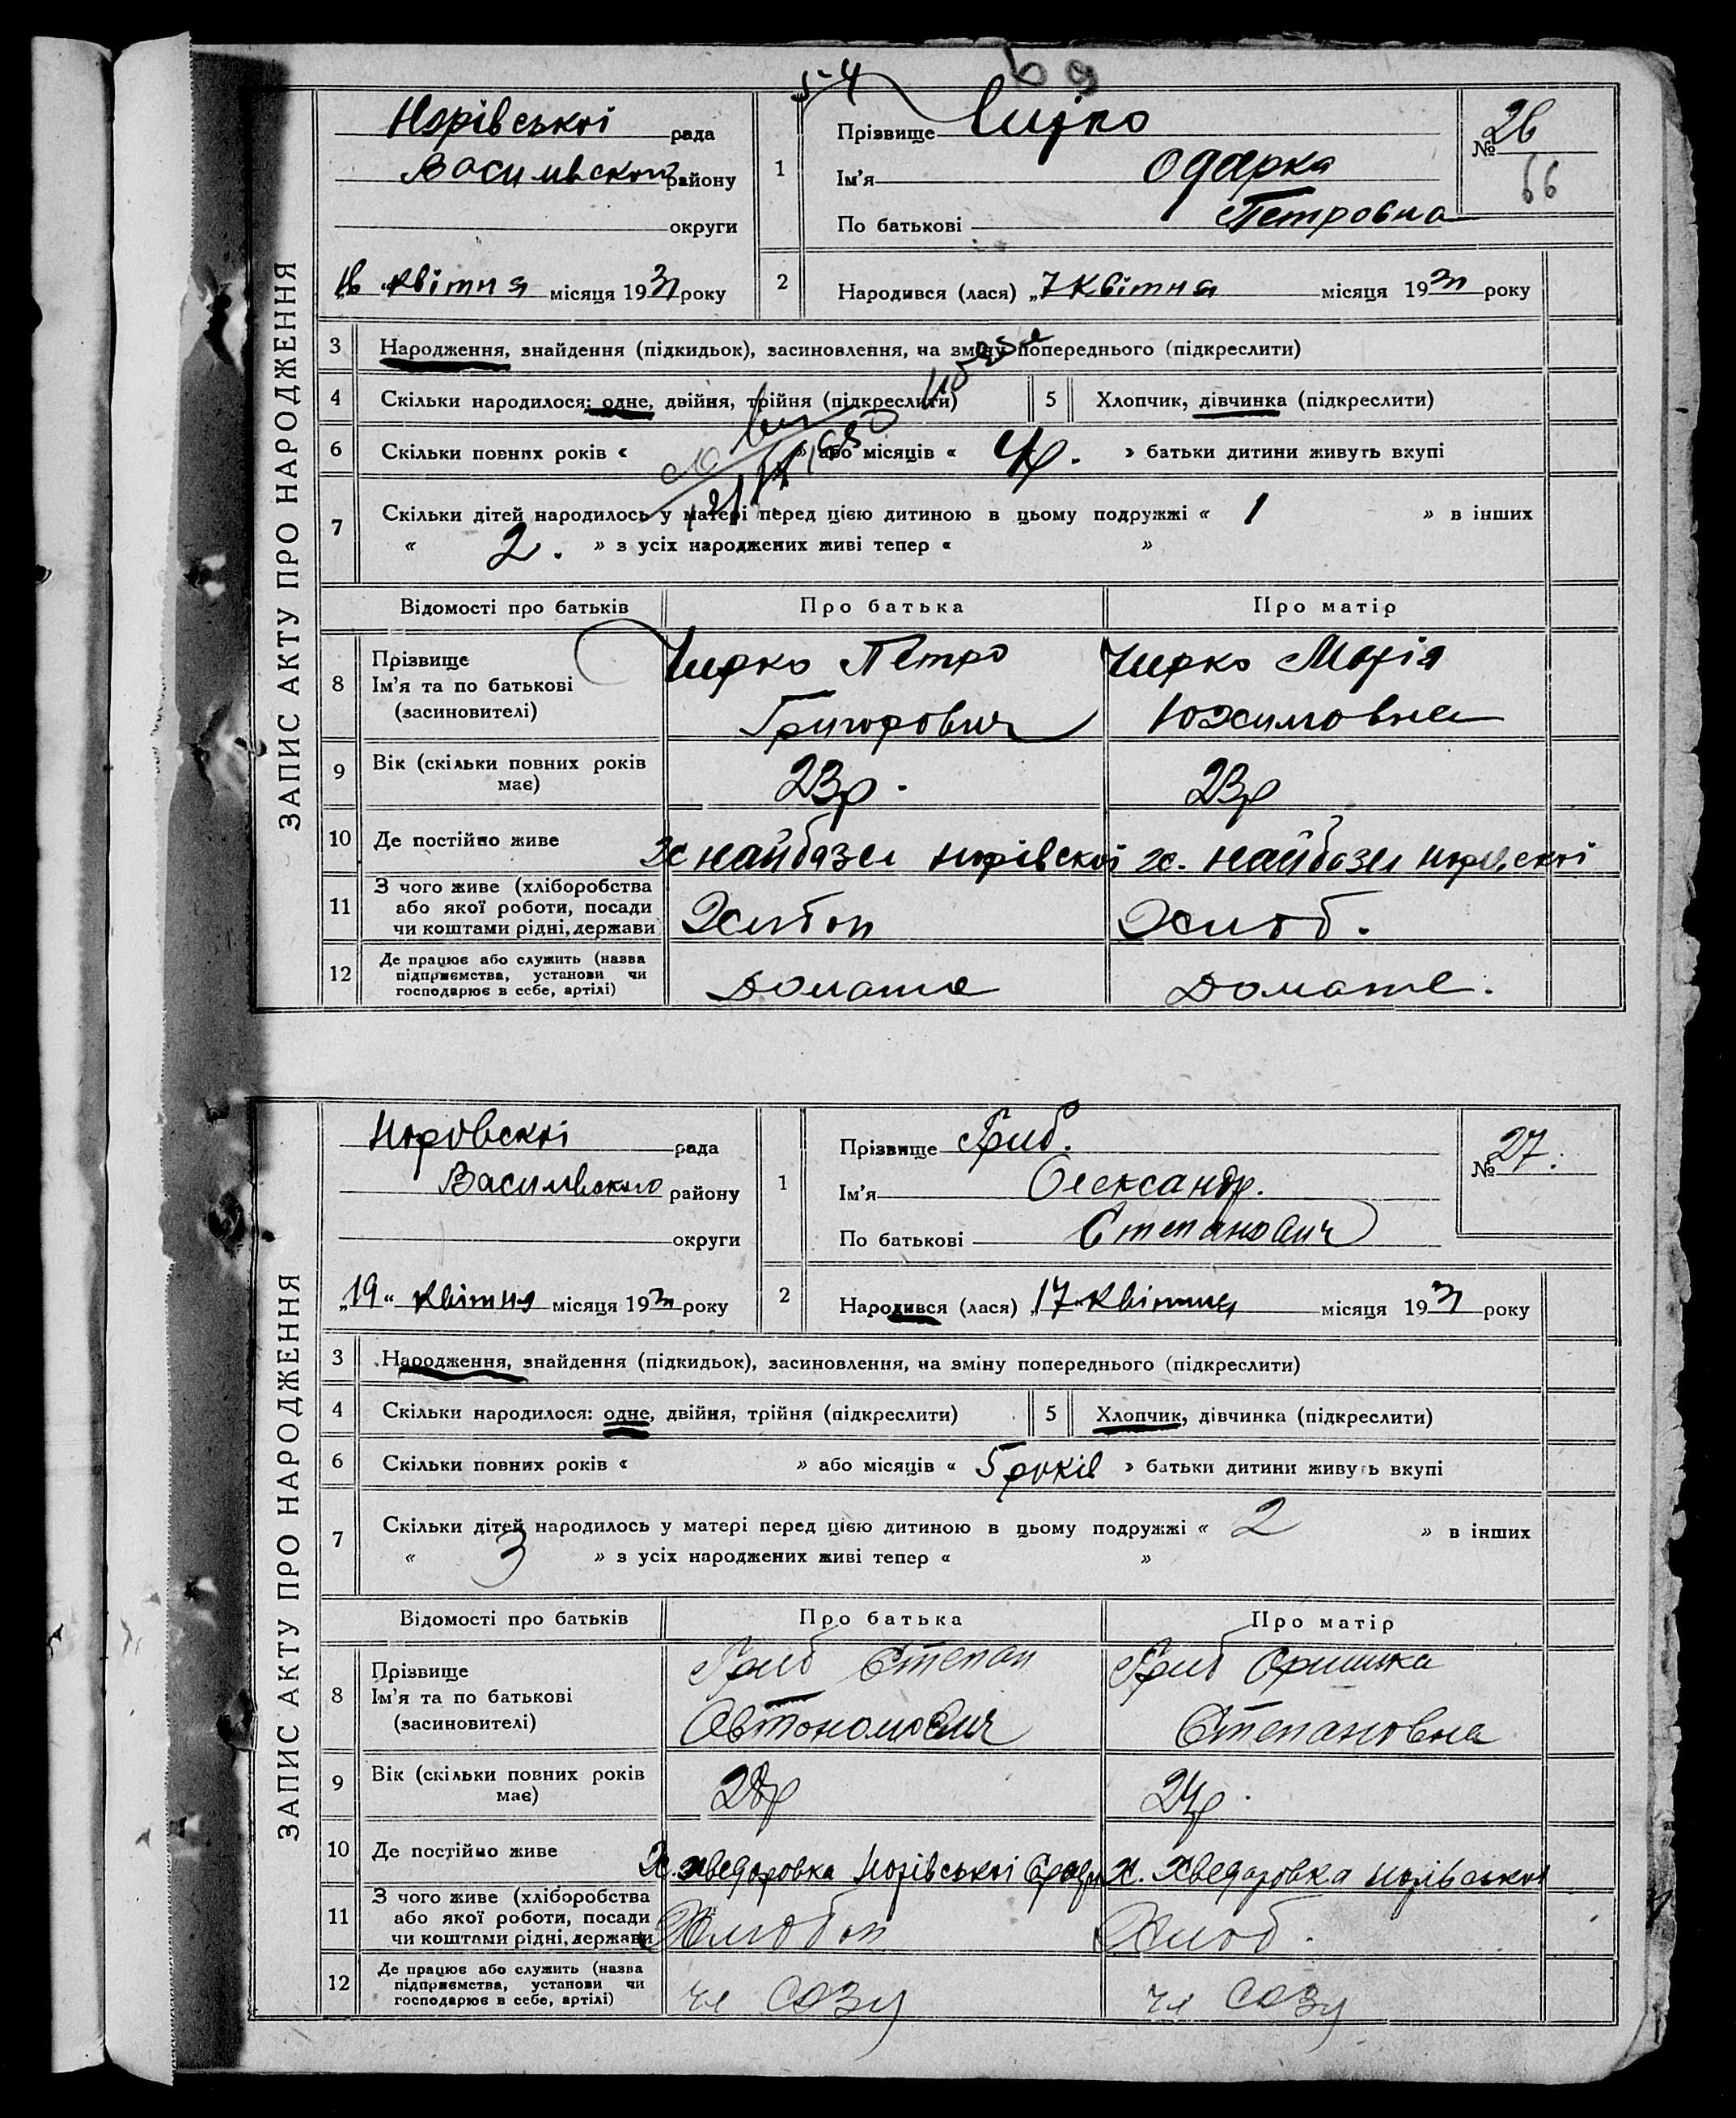 5-4
ЗАПИС АКТУ ПРО НАРОДЖЕННЯ
Норівської рада
Васимвского району
округи
1
Прізвище Чирко
Ім'я Одарка
По батькові Петровна
№ 26
66
квітня місяця 193 року
2
Народився (лася) „7 Квітня місяця 193 року
3
Народження, знайдення (підкидьок), засиновлення, на зміну попереднього (підкреслити)
4
Скільки народилося: одне, двійня, трійня (підкреслити)
5
Хлопчик, дівчинка (підкреслити)
6
Скільки повних років « » або місяців « 4р. » батьки дитини живуть вкупі
7
Скільки дітей народилось у матері перед цією дитиною в цьому подружжі « 1 » в інших
« 2. » з усіх народжених живі тепер « »
Відомості про батьків
Про батька
Про матір
8
Прізвище
Ім'я та по батькові
(засиновителі)
Чирко Петро
Григорович
Чирко Марія
Юхимовна
9
Вік (скільки повних років
має)
23р.
23р
10
Де постійно живе
х найбази норівскої
х. найбази норівскої
11
З чого живе (хліборобства
або якої роботи, посади
чи коштами рідні, держави
Хлібоп
Хліоб.
12
Де працює або служить (назва
підприємства, установи чи
господарює в себе, артілі)
Домаше
Домаше.
ЗАПИС АКТУ ПРО НАРОДЖЕННЯ
Норовскої рада
Васимвского району
округи
1
Прізвище Гриб.
Ім'я Олександр.
По батькові Степанович
№ 27.
„19“ квітня місяця 193 року
2
Народився (лася) „17“ квітня місяця 193 року
3
Народження, знайдення (підкидьок), засиновлення, на зміну попереднього (підкреслити)
4
Скільки народилося: одне, двійня, трійня (підкреслити)
5
Хлопчик, дівчинка (підкреслити)
6
Скільки повних років « » або місяців « 5 років » батьки дитини живуть вкупі
7
Скільки дітей народилось у матері перед цією дитиною в цьому подружжі « 2 » в інших
« 3 » з усіх народжених живі тепер « »
Відомості про батьків
Про батька
Про матір
8
Прізвище
Ім'я та по батькові
(засиновителі)
Гриб Степан
Автономович
Гриб Оришка
Степановна
9
Вік (скільки повних років
має)
28р
24р.
10
Де постійно живе
Х. хведоровка Норівської Сради
Х. Хведоровка норівської
11
З чого живе (хліборобства
або якої роботи, посади
чи коштами рідні, держави
Хлібоп
Хліоб.
12
Де працює або служить (назва
підприємства, установи чи
господарює в себе, артілі)
чл СОЗу
чл СОЗу